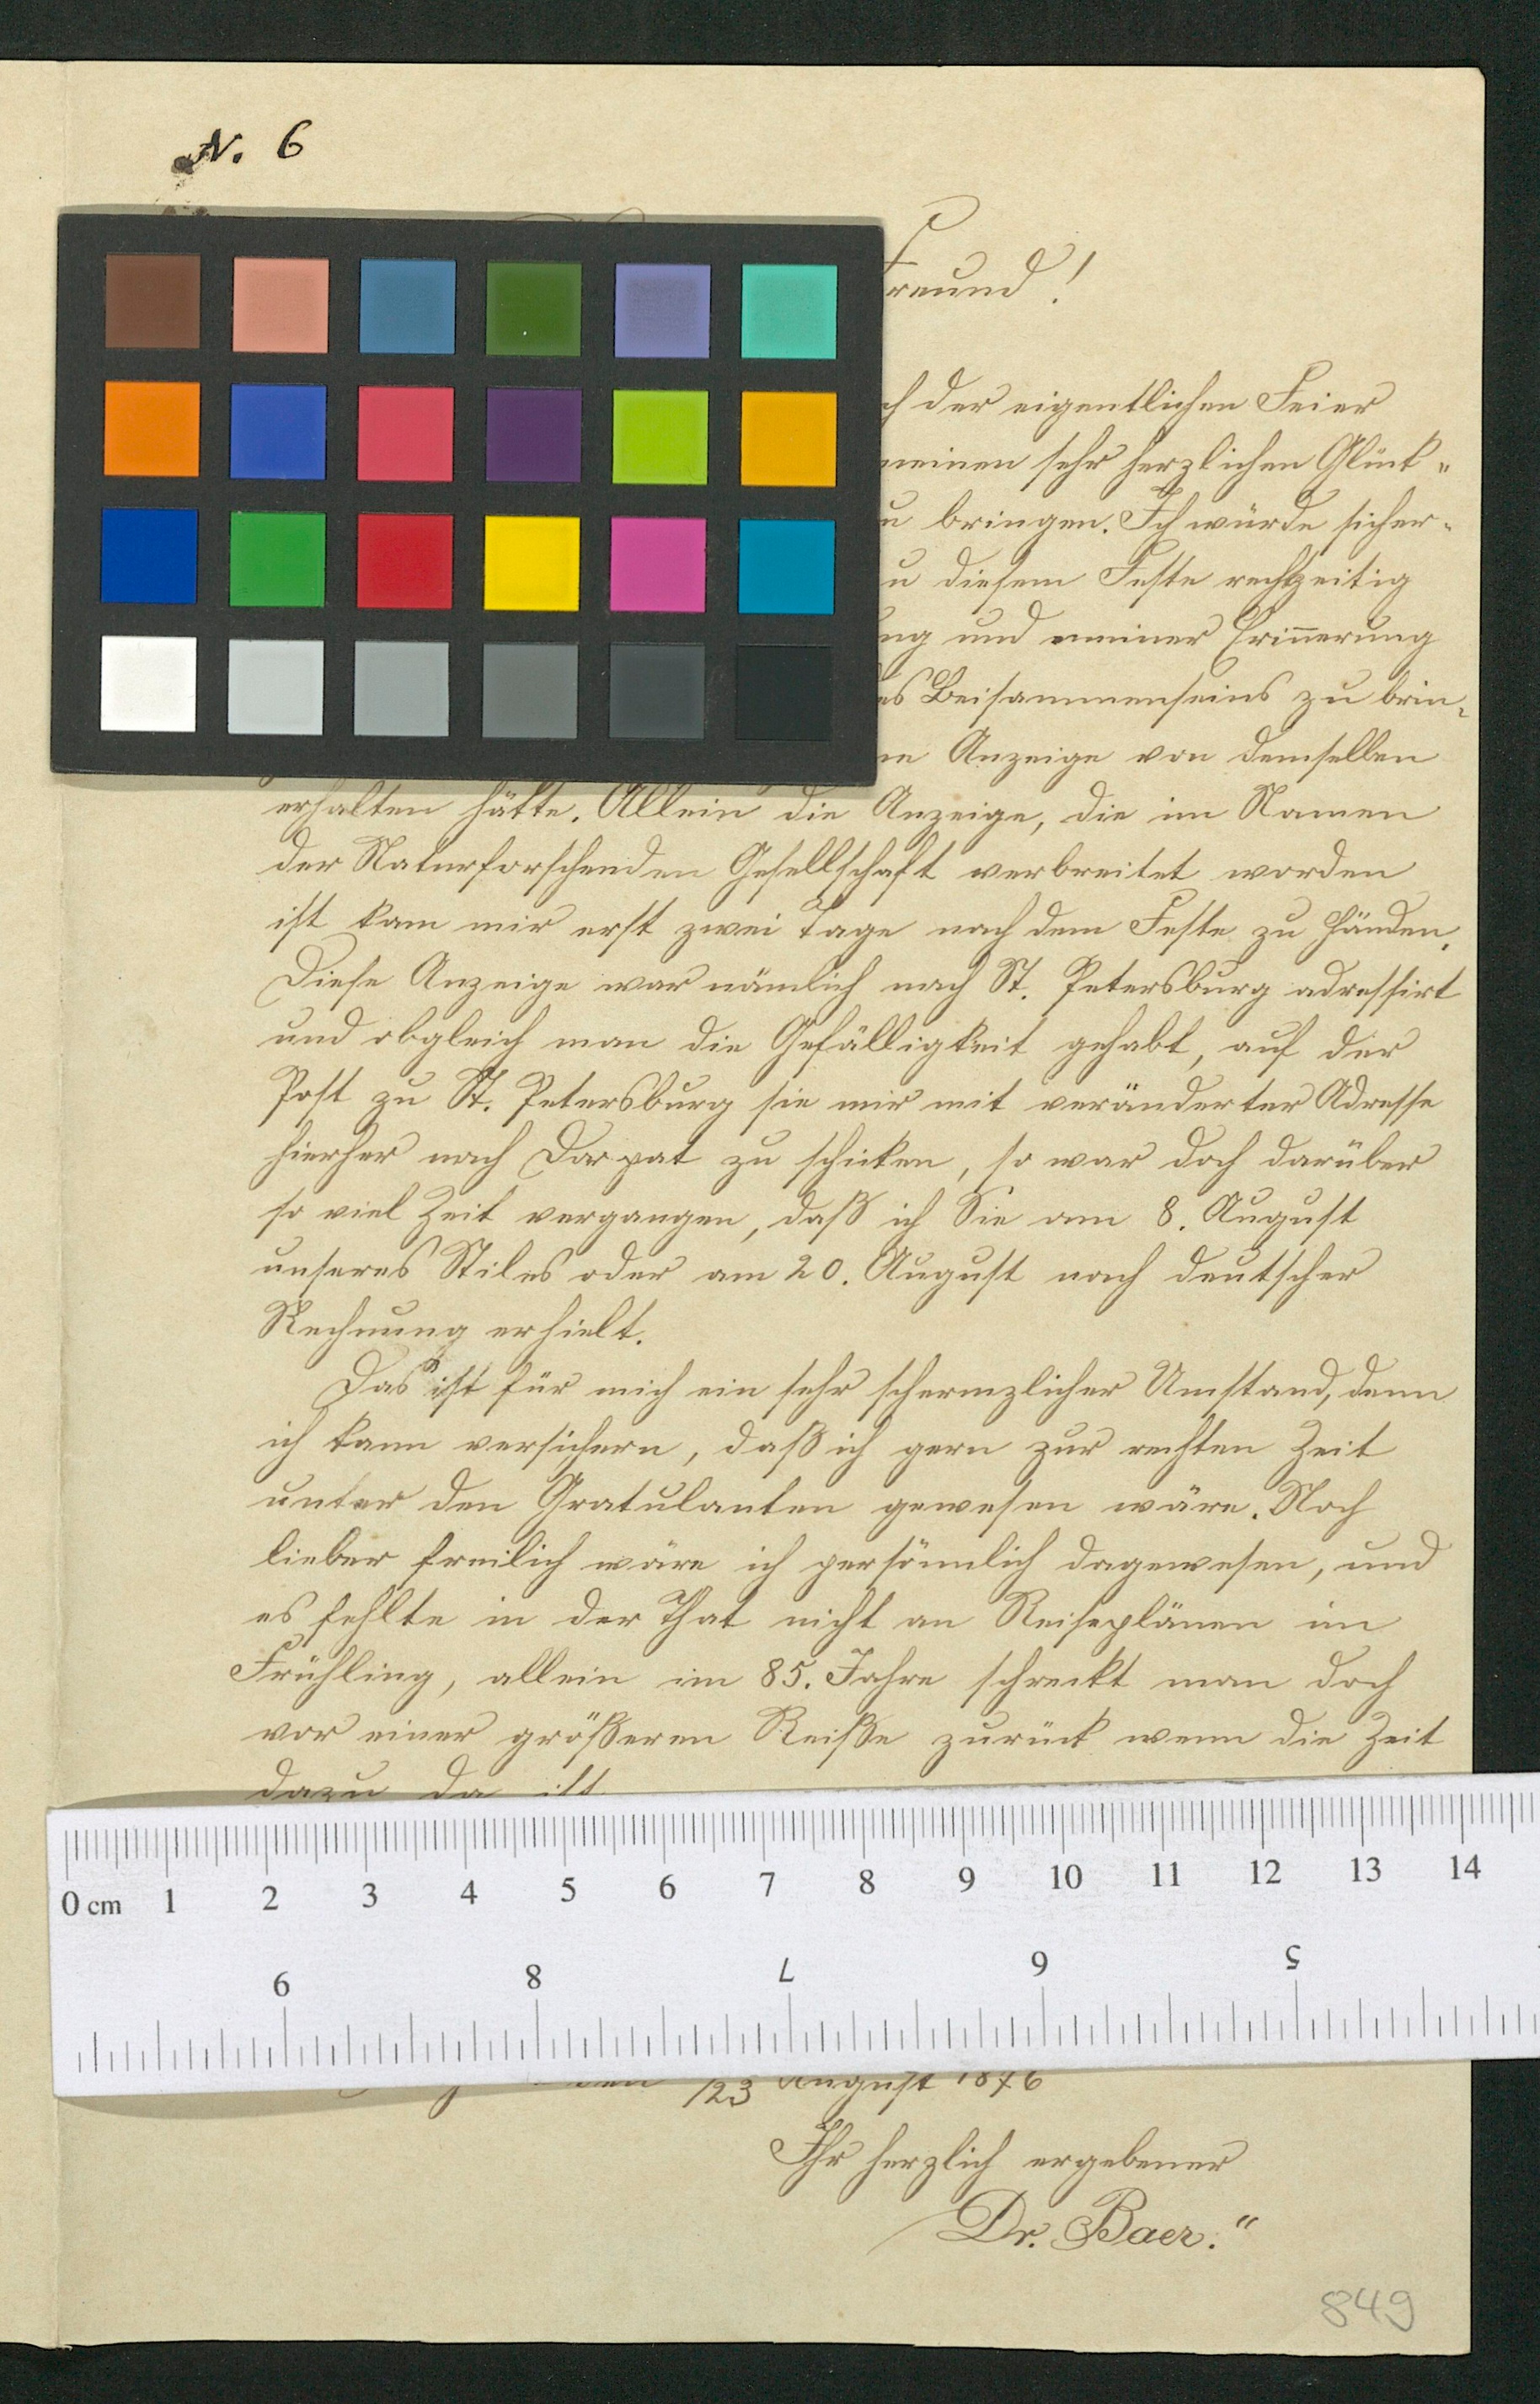 N. 6
Freund!
der eigentlichen Feier
meinen sehr herzlichen Glück-
bringen. Ich würde sicher-
diesem Feste rechtzeitig
und meiner Erinnerung
Beisammenseins zu brin-
Anzeige von demselben
erhalten hätte. Allein die Anzeige, die im Namen
der Naturforschenden Gesellschaft verbreitet worden
ist kam mir erst zwei Tage nach dem Feste zu Händen.
Diese Anzeige war nämlich nach St. Petersburg adressirt
und obgleich man die Gefälligkeit gehabt, auf der
Post zu St. Petersburg sie mir mit veränderter Adresse
hierher nach Dorpat zu schicken, so war doch darüber
so viel Zeit vergangen, daß ich Sie am 8. August
unseres Stiles oder am 20. August nach deutscher
Rechnung erhielt.
Das ist für mich ein sehr schmerzlicher Umstand, denn
ich kann versichern, daß ich gern zur rechten Zeit
unter den Gratulanten gewesen wäre. Noch
lieber freilich wäre ich persönlich dagewesen, und
es fehlte in der That nicht an Reiseplänen im
Frühling, allein im 85. Jahre schreckt man doch
vor einer größeren Reiße zurück wenn die Zeit
dazu da ist
0 cm 1 2 3 4 5 6 7 8 9 10 11 12 13 14
9 8 7 6 5
/23 August 1876
Ihr herzlich ergebener
Dr. Baer."
849